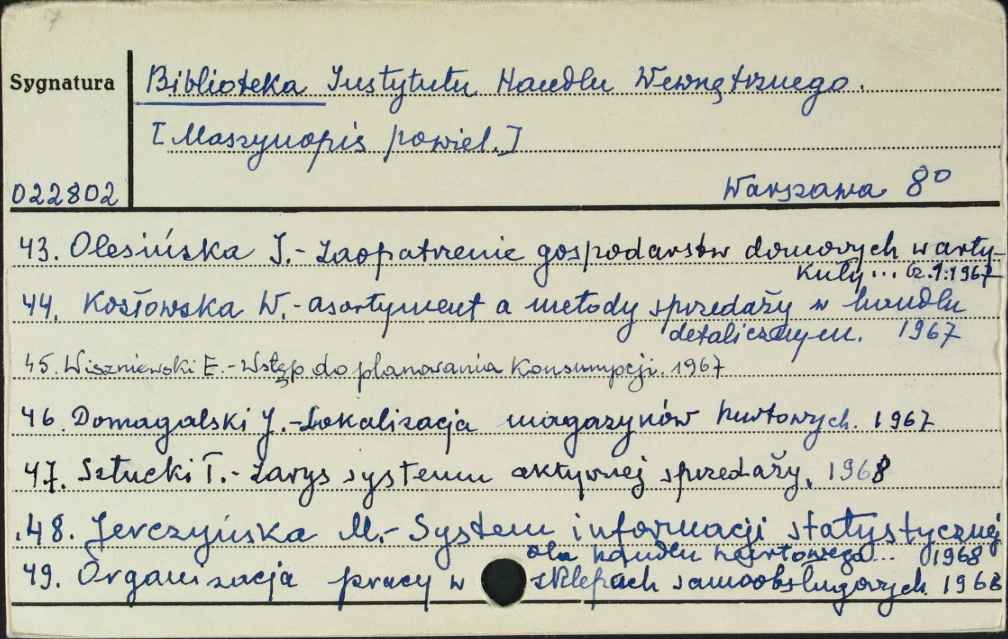 7
Sygnatura
Biblioteka Instytutu Handlu Wewnętrznego.
[Maszynopis powiel.]
022802
Warszawa 8°
43. Olesińska J.- Zaopatrzenie gospodarstw domowych w arty-
kuły... Cz.1:1967
44. Kosłowska W.- asortyment a metody sprzedaży w handlu
detalicznym. 1967
45. Wiszniewski E.- Wstęp do planowania Konsumpcji. 1967
46. Domagalski J.- Lokalizacja magazynów hurtowych. 1967
47. Sztucki T.- Zarys systemu aktywnej sprzedaży. 1968
48. Jerczyńska M.- System informacji statystycznej
dla handlu hurtowego... 1968
49. Organizacja pracy w sklepach samoobsługowych. 1968